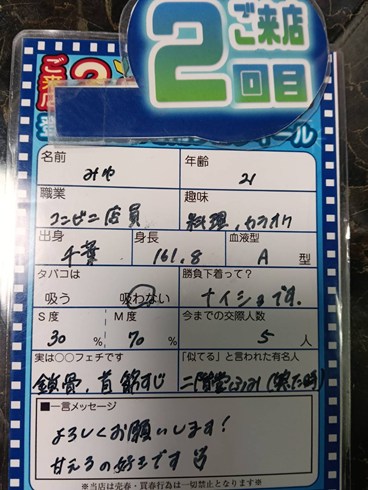 2
ご来店
回目
名前 みや 年齢 21
職業 コンビニ店員 趣味 料理、カラオケ
出身 千葉 身長 161.8 血液型 A 型
タバコは 吸う 吸わない 勝負下着って? ナイショです。
S度 30 % M度 70 % 今までの交際人数 5 人
実は○○フェチです 鎖骨、首筋すじ 「似てる」と言われた有名人 二階堂ふみ
■一言メッセージ
よろしくお願いします!
甘えるの好きです
※当店は売春・買春行為は一切禁止となります※